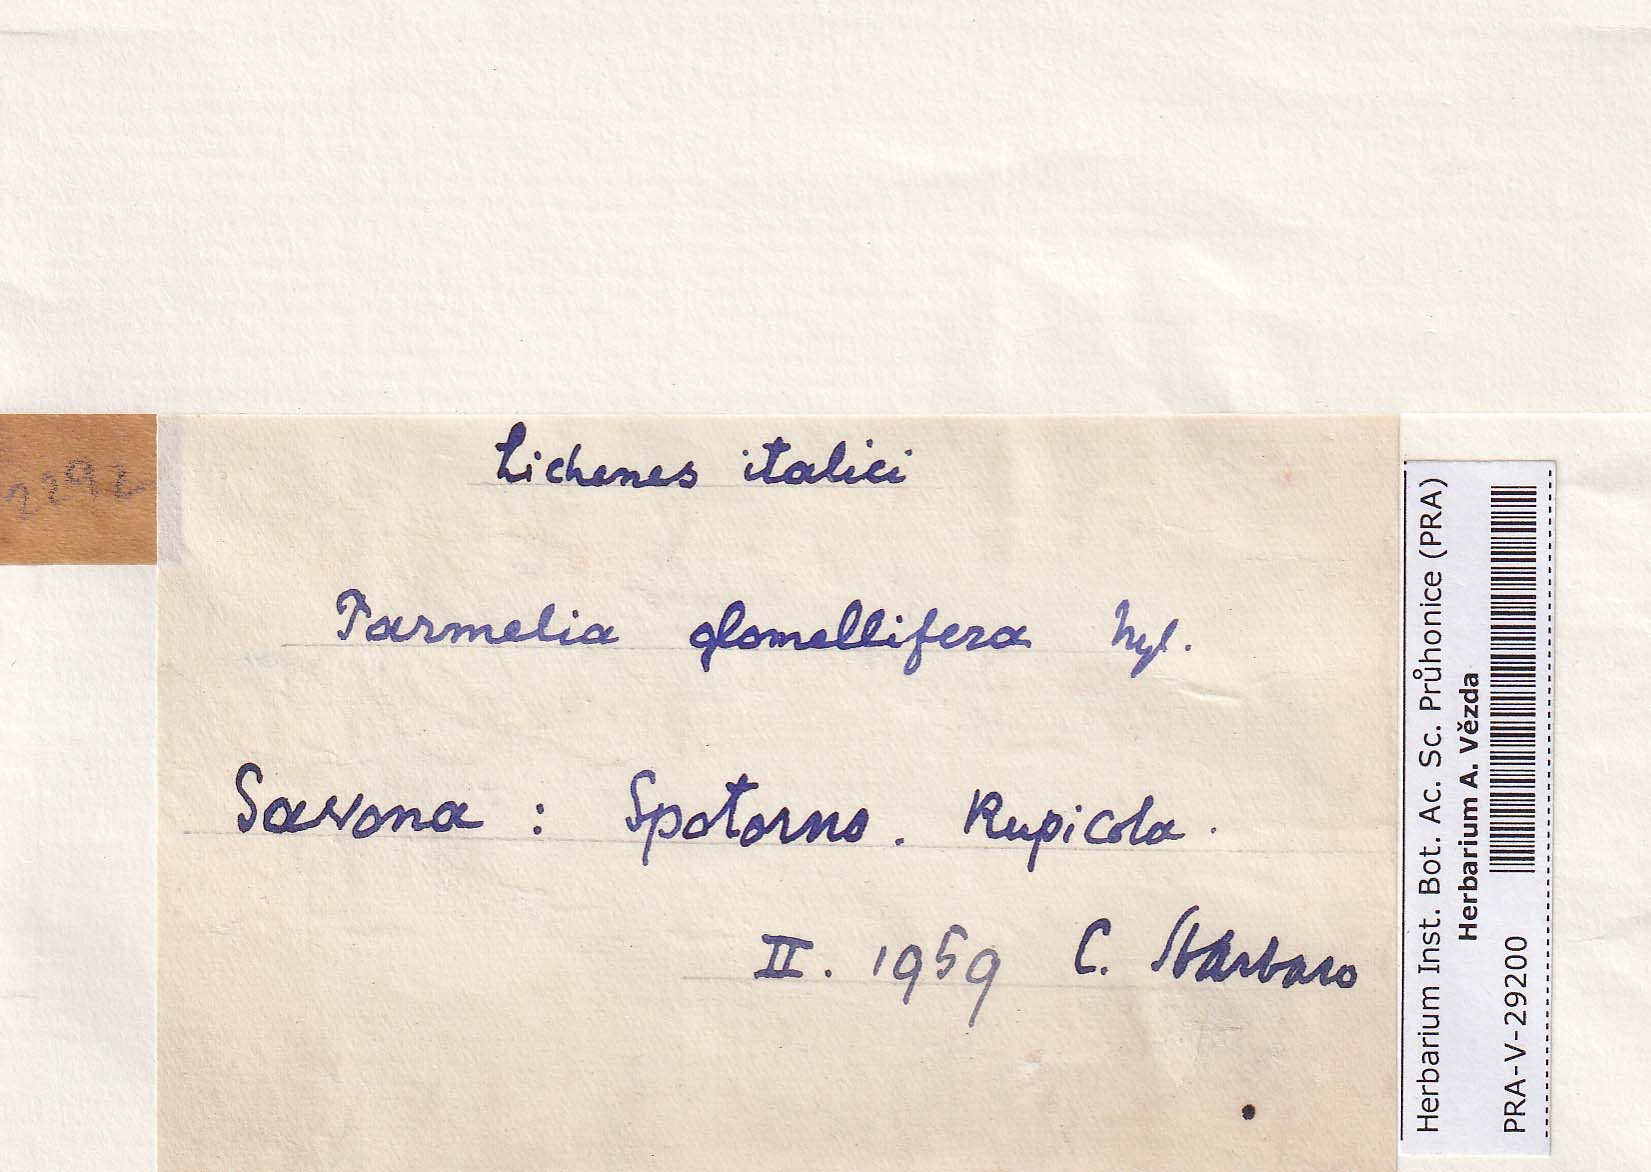 Lichenes italici
2292
Parmelia glomellifera Nyl.
Savona : Spotorno. Rupicola.
II. 1959 C. Sbarbaro
Herbarium Inst. Bot. Ac. Sc. Průhonice (PRA)
Herbarium A. Vězda
PRA-V-29200